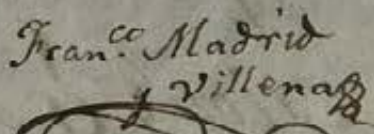 Fran.co Madrid
y Villena